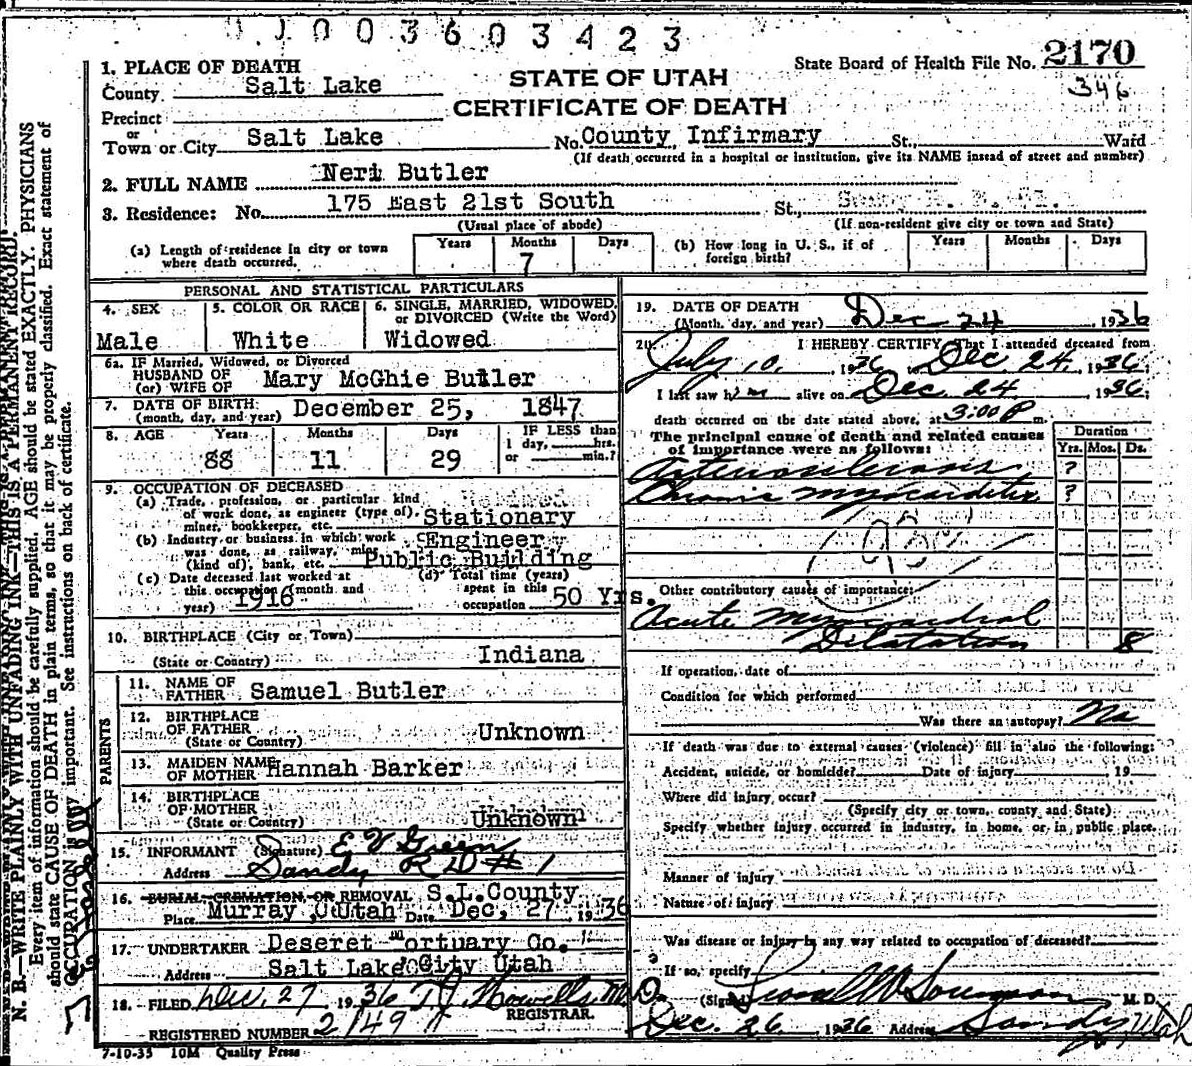 0 0 3 6 0 3 4 2 3
State Board of Health File No. 2170
346
STATE OF UTAH
CERTIFICATE OF DEATH
1. PLACE OF DEATH
County Salt Lake
Precinct
or
Town or City Salt Lake No. County Infirmary St., Ward
(If death occurred in a hospital or institution, give its NAME instead of street and number)
2. FULL NAME Neri Butler
3. Residence: No. 175 East 21st South St.,
(Usual place of abode) (If non-resident give city or town and State)
(a) Length of residence in city or town where death occurred. Years Months 7 Days
(b) How long in U. S., if of foreign birth? Years Months Days
PERSONAL AND STATISTICAL PARTICULARS
4. SEX Male
5. COLOR OR RACE White
6. SINGLE, MARRIED, WIDOWED, or DIVORCED (Write the Word) Widowed
6a. IF Married, Widowed, or Divorced
HUSBAND OF
(or) WIFE OF Mary McGhie Butler
7. DATE OF BIRTH
(month, day, and year) December 25, 1847
8. AGE Years 88 Months 11 Days 29
IF LESS than 1 day, hrs. or min.?
9. OCCUPATION OF DECEASED
(a) Trade, profession, or particular kind of work done, as engineer (type of), miner, bookkeeper, etc. Stationary Engineer
(b) Industry or business in which work was done, as railway, mine (kind of), bank, etc. Public Building
(c) Date deceased last worked at this occupation (month and year) 1916
(d) Total time (years) spent in this occupation 50 Yrs.
10. BIRTHPLACE (City or Town)
(State or Country) Indiana
PARENTS
11. NAME OF FATHER Samuel Butler
12. BIRTHPLACE OF FATHER
(State or Country) Unknown
13. MAIDEN NAME OF MOTHER Hannah Barker
14. BIRTHPLACE OF MOTHER
(State or Country) Unknown
15. INFORMANT (Signature) E V Green
Address Sandy R D # 1
16. BURIAL, CREMATION, OR REMOVAL S.L.County
Place Murray, Utah Date Dec, 27 1936
17. UNDERTAKER Deseret Mortuary Co.
Address Salt Lake City Utah
18. FILED Dec. 27 1936 T.J. Howells M.D.
REGISTRAR.
REGISTERED NUMBER 2149
7-10-35 10M Quality Press
19. DATE OF DEATH
(Month, day, and year) Dec 24 1936
20. I HEREBY CERTIFY, That I attended deceased from
July 10, 1936, Dec. 24, 1936;
I last saw him alive on Dec 24 1936;
death occurred on the date stated above, at 3:00 P m.
The principal cause of death and related causes of importance were as follows:
Duration
Yrs. Mos. Ds.
Arteriosclerosis ?
Chronic Myocarditis ?
Other contributory causes of importance:
Acute Myocardial
Dilatation 8
If operation, date of
Condition for which performed
Was there an autopsy? No
If death was due to external causes (violence) fill in also the following:
Accident, suicide, or homicide? Date of injury , 19
Where did injury occur?
(Specify city or town, county, and State)
Specify whether injury occurred in industry, in home, or in public place.
Manner of injury
Nature of injury
Was disease or injury in any way related to occupation of deceased?
If so, specify
(Signed) M. D.
Dec. 26 1936 Address Sandy, Utah
N. B.—WRITE PLAINLY WITH UNFADING INK—THIS IS A PERMANENT RECORD.
Every item of information should be carefully supplied. AGE should be stated EXACTLY. PHYSICIANS
should state CAUSE OF DEATH in plain terms, so that it may be properly classified. Exact statement of
OCCUPATION is very important. See instructions on back of certificate.